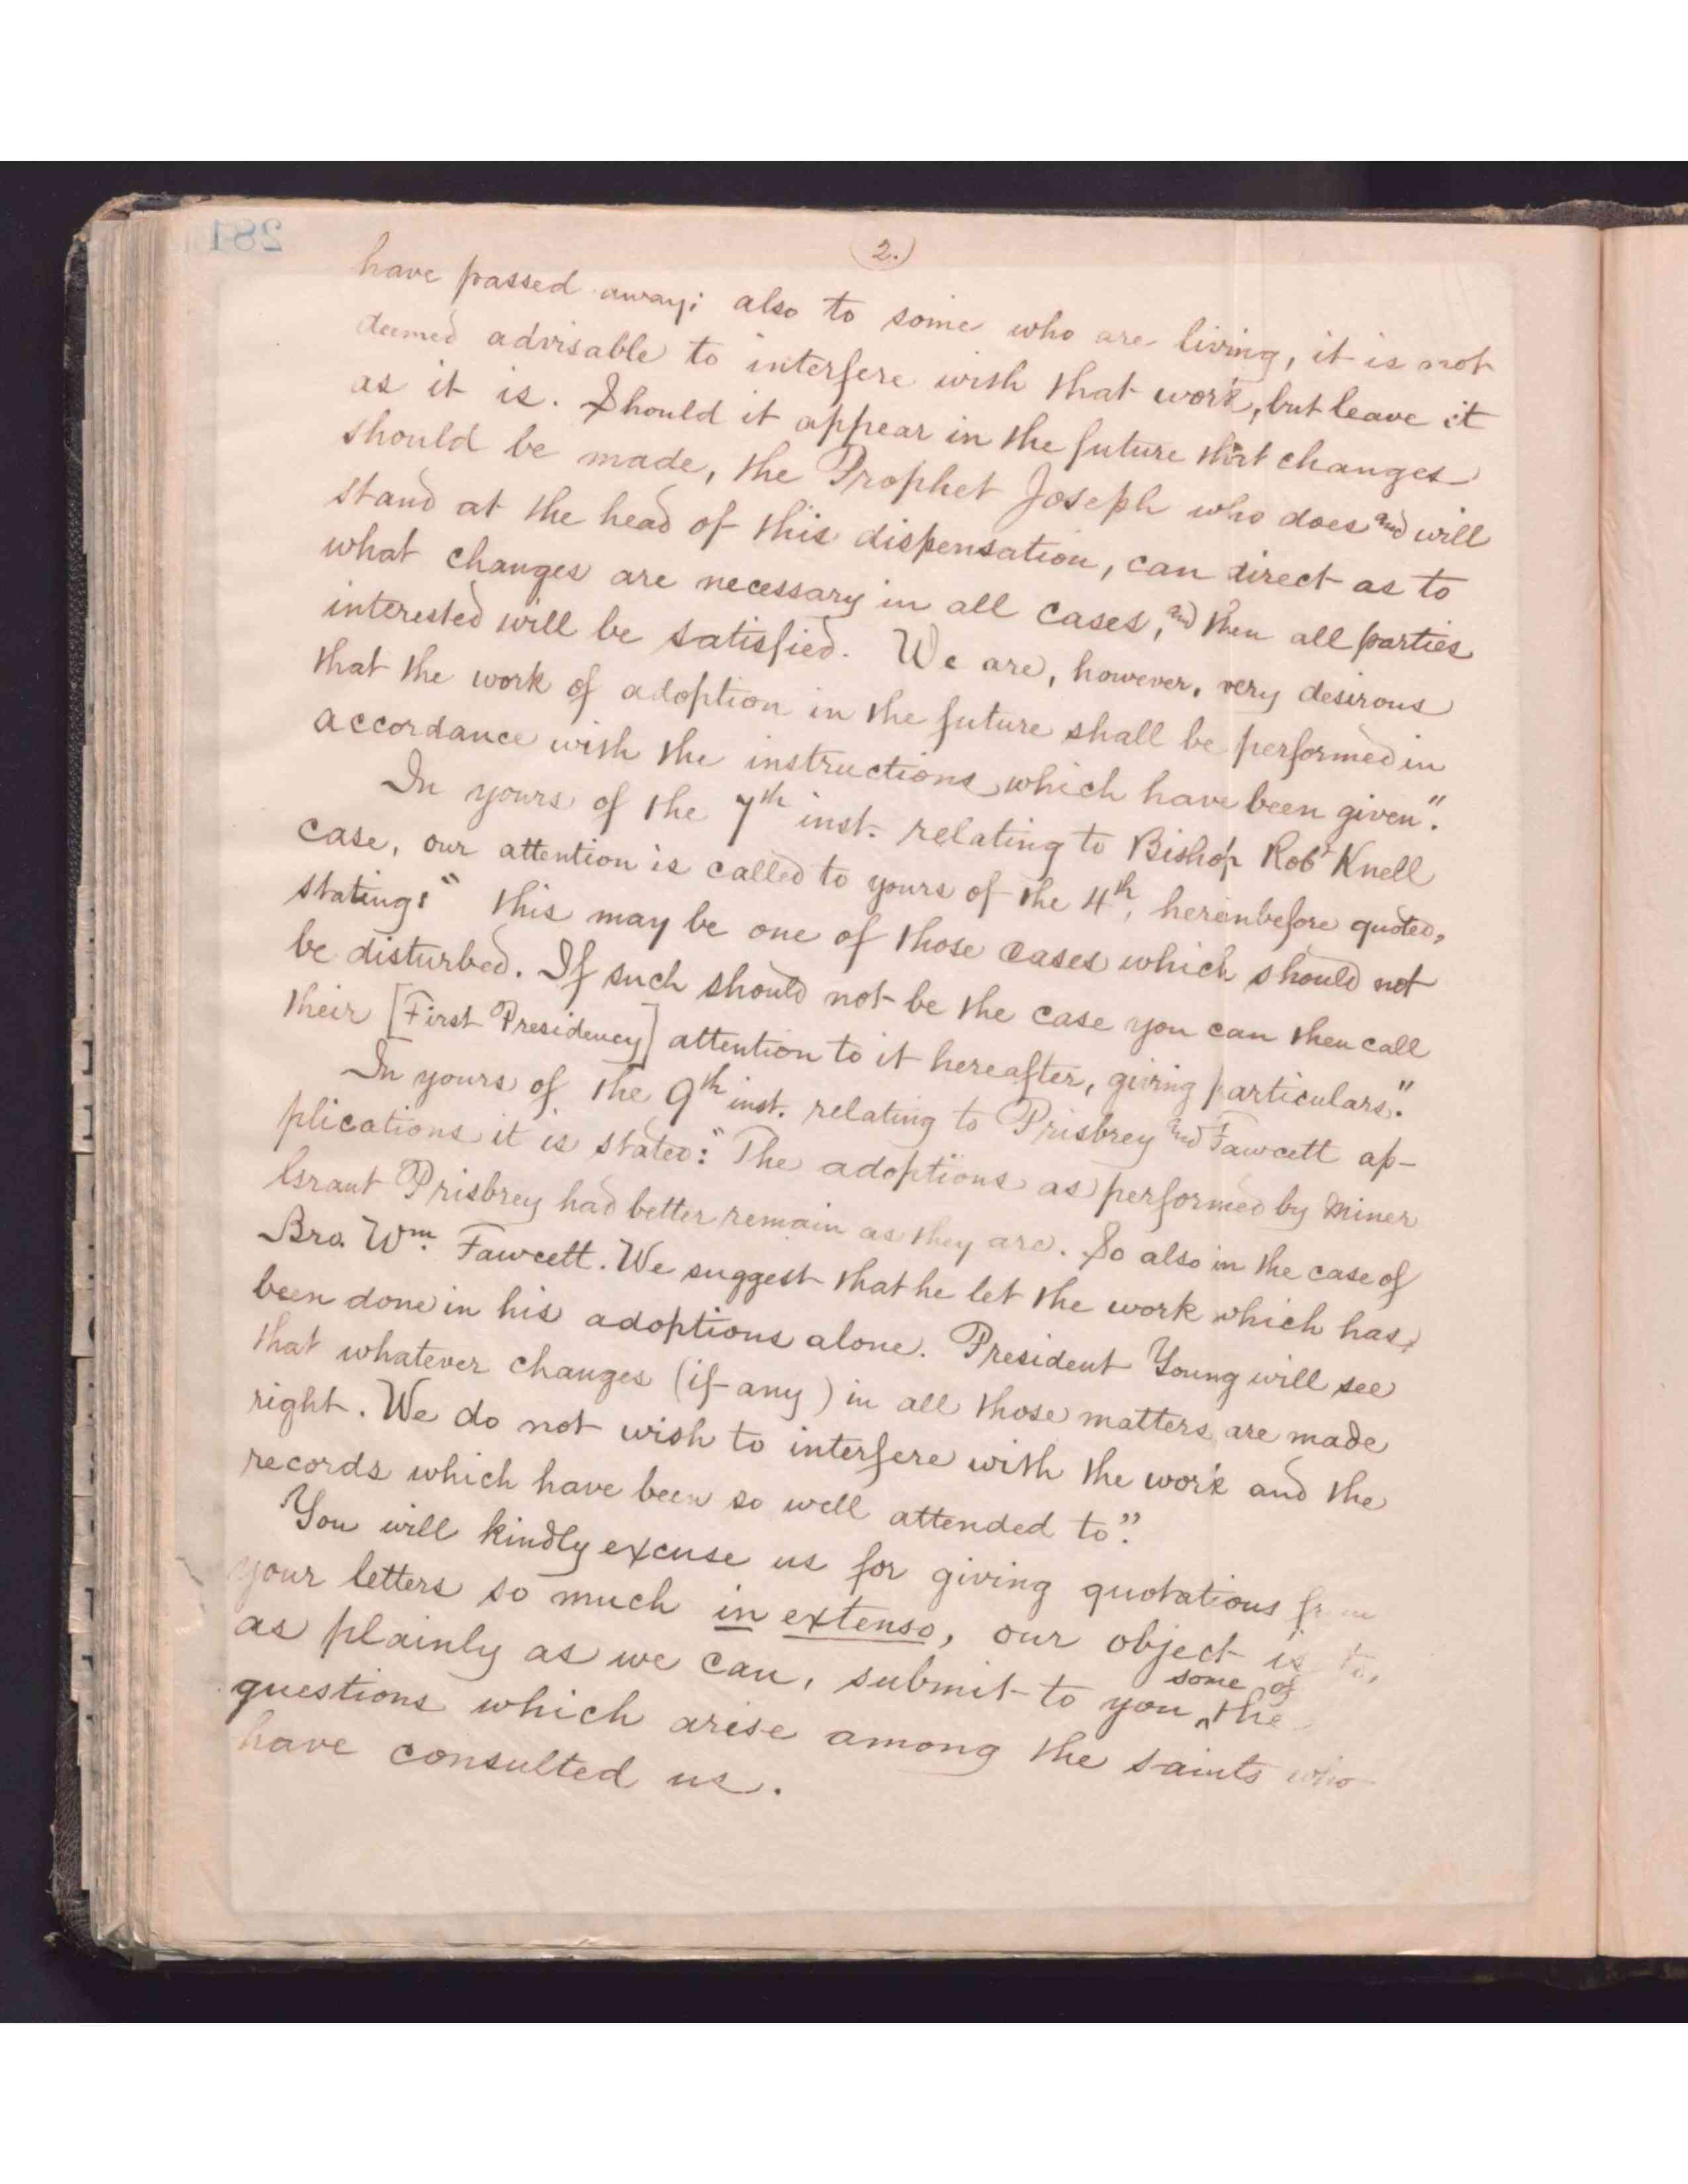 281
2.)
have passed away; also to some who are living, it is not
deemed advisable to interfere with that work, but leave it
as it is. Should it appear in the future that changes
should be made, the Prophet Joseph who does and will
stand at the head of this dispensation, can direct as to
what changes are necessary in all cases, and then all parties
interested will be satisfied. We are, however, very desirous
that the work of adoption in the future shall be performed in
accordance with the instructions which have been given".
In yours of the 7th inst. relating to Bishop Robt Knell
case, our attention is called to yours of the 4th, hereinbefore quoted,
stating: "this may be one of those cases which should not
be disturbed. If such should not be the case you can then call
their [First Presidency] attention to it hereafter, giving particulars."
In yours of the 9th inst. relating to Prisbrey and Fawcett ap-
plications it is stated: "The adoptions as performed by Miner
Grant Prisbrey had better remain as they are. So also in the case of
Bro. Wm. Fawcett. We suggest that he let the work which has
been done in his adoptions alone. President Young will see
that whatever changes (if any) in all those matters are made
right. We do not wish to interfere with the work and the
records which have been so well attended to".
You will kindly excuse us for giving quotations from
your letters so much in extenso, our object is to,
as plainly as we can, submit to you some of the
questions which arise among the saints who
have consulted us.